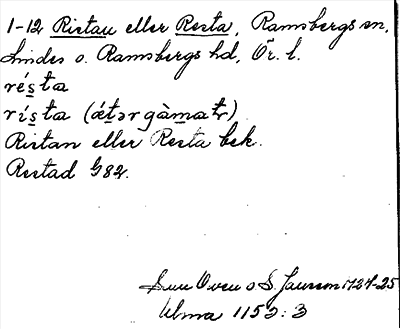 1-12 Ristan eller Resta, Ramsbergs sn,
Lindes o. Ramsbergs hd, Ör. l.
résta
rísta (ǽtərgàmatr)
Ristan eller Resta bek.
Restad G82.
Sven Oven o S. Jansson 1924-25
Ulma 1153:3